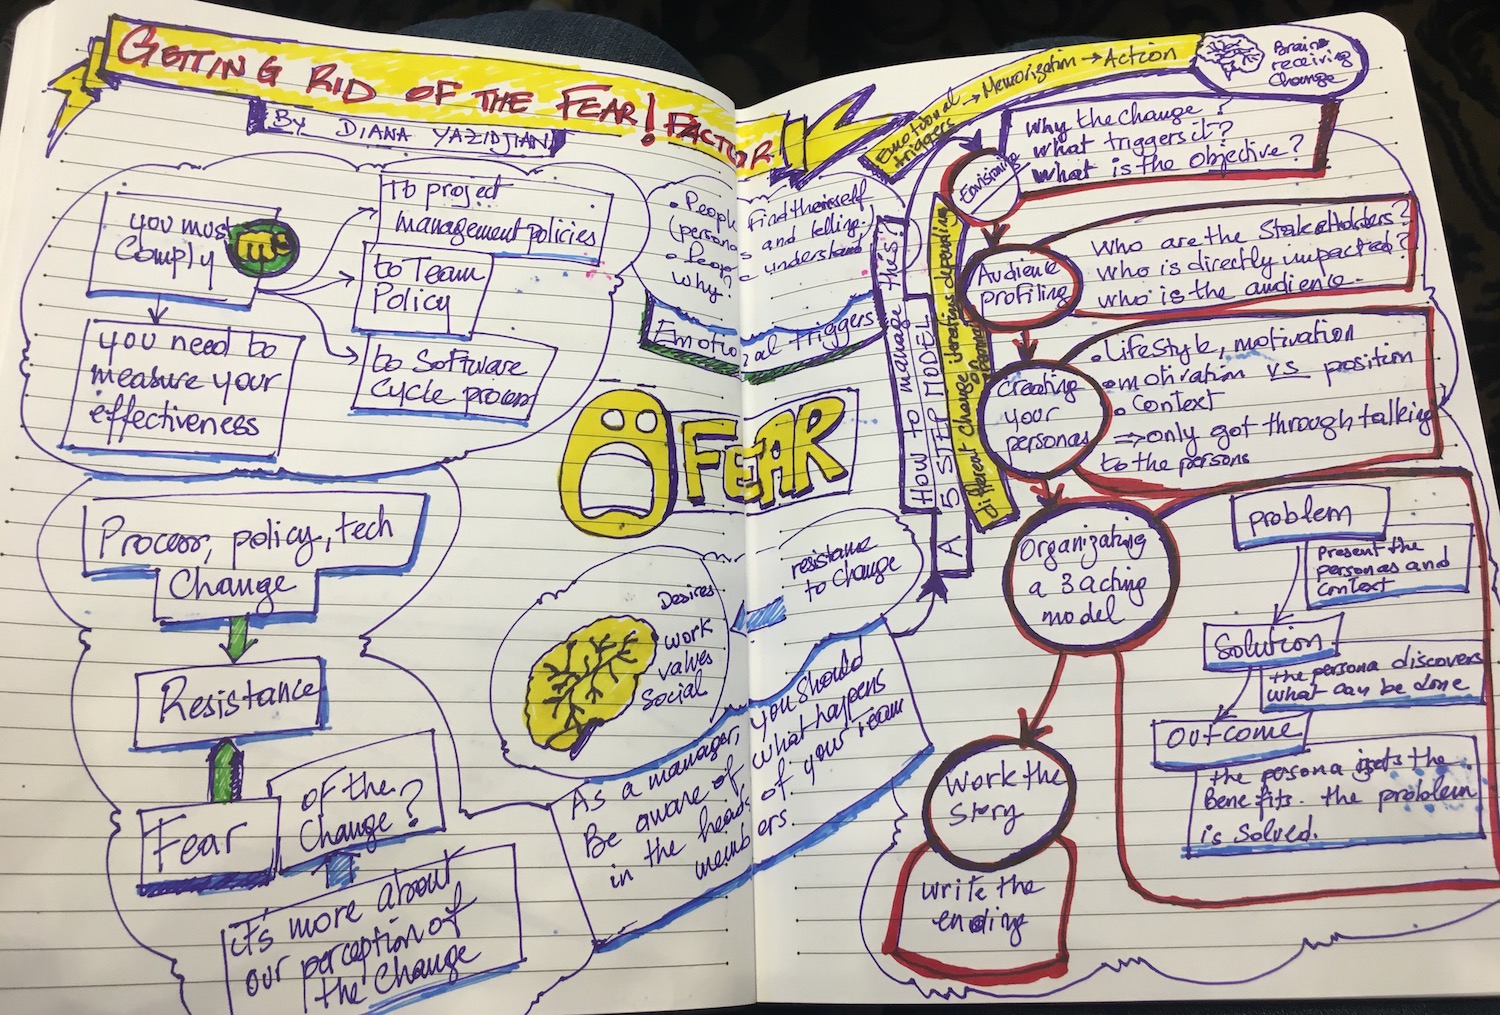 GETTING RID OF THE FEAR! FACTOR
BY DIANA YAZIDJIAN
you must
Comply
to project
management policies
to Team
Policy
to Software
Cycle process
you need to
measure your
effectiveness
Process, policy, tech
Change
Resistance
Fear
of the
Change?
it's more about
our perception of
the Change
People find theirself
and telling
understand
why?
Emotional triggers
FEAR
resistance
to change
Desires
work
values
Social
As a manager, you should
Be aware of what happens
in the heads of your Team
members.
Emotional
triggers → Memorization → Action
Brain
receiving
Change
How to manage this?
A 5 STEP MODEL
different change iterations depending
Envisioning
Why the change?
what triggers it?
What is the objective?
Audience
profiling
Who are the StakeHolders?
who is directly impacted?
who is the audience.
Creating
your
personas
• Lifestyle, motivation
• motivation vs position
• Context
⇒ only got through talking
to the persons
Organizating
a 3 acting
model
problem
Present the
personas and
context
Solution
the persona discovers
what can be done
outcome
the persona gets the
Benefits. the problem
is solved.
Work the
Story
write the
ending